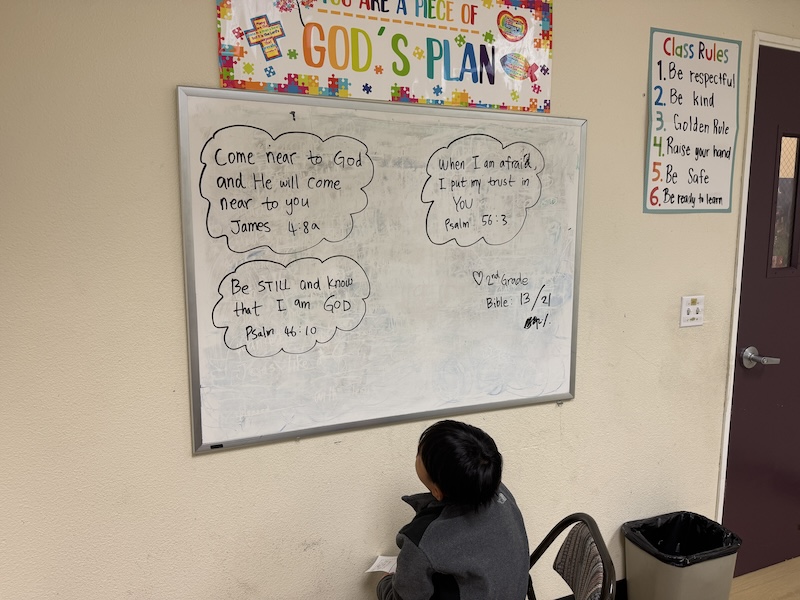 YOU ARE A PIECE OF
GOD'S PLAN
Come near to God
and He will come
near to you
James 4:8a
When I am afraid,
I put my trust in
YOU
Psalm 56:3
Be STILL and know
that I am GOD
Psalm 46:10
♡ 2nd Grade
Bible: 13/21
Class Rules
1. Be respectful
2. Be kind
3. Golden Rule
4. Raise your hand
5. Be Safe
6. Be ready to learn